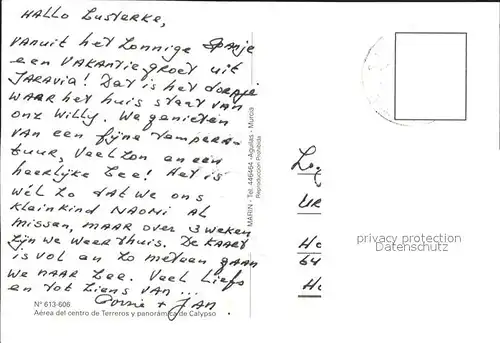 HALLO Zusterke,
vanuit het zonnige Spanje
een vakantiegroet uit
Jaravia! Dat is het dorpje
waar het huis staat van
ons Willy. We genieten
van een fijne tempera-
tuur, veel zon en een
heerlijke zee! Het is
wél zo dat we ons
kleinkind NAOMI al
missen, maar over 3 weken
zijn we weer thuis. De kaart
is vol en zo meteen gaan
we naar zee. Veel liefs
en tot ziens van ...
+ JAN.
Nº 613-606
Aérea del centro de Terreros y panorámica de Calypso
MARIN - Tel. 446464 - Aguilas - Murcia
Reproducción Prohibida
privacy protection
Datenschutz
Ho
64
Ho